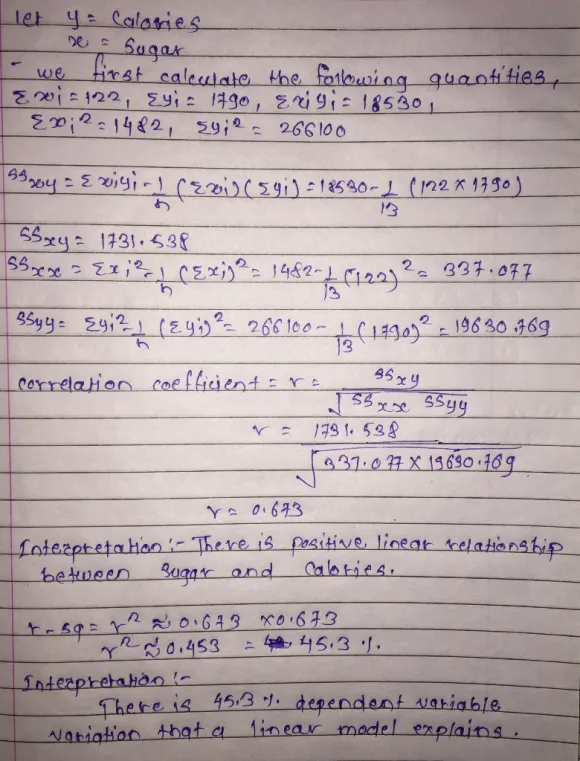 let y = Calories
x = Sugar
- we first calculate the following quantities,
Σxi = 122, Σyi = 1790, Σxiyi = 18530,
Σxi² = 1482, Σyi² = 266100
SSxy = Σxiyi - 1/n (Σxi)(Σyi) = 18530 - 1/13 (122 × 1790)
SSxy = 1731.538
SSxx = Σxi² - 1/n (Σxi)² = 1482 - 1/13 (122)² = 337.077
SSyy = Σyi² - 1/n (Σyi)² = 266100 - 1/13 (1790)² = 19630.769
correlation coefficient = r = SSxy / √SSxx SSyy
r = 1731.538 / √337.077 × 19630.769
r = 0.673
Interpretation :- There is positive linear relationship
between Sugar and Calories.
r-sq = r² ≈ 0.673 × 0.673
r² ≈ 0.453 = 45.3 %.
Interpretation :-
There is 45.3 % dependent variable
variation that a linear model explains.